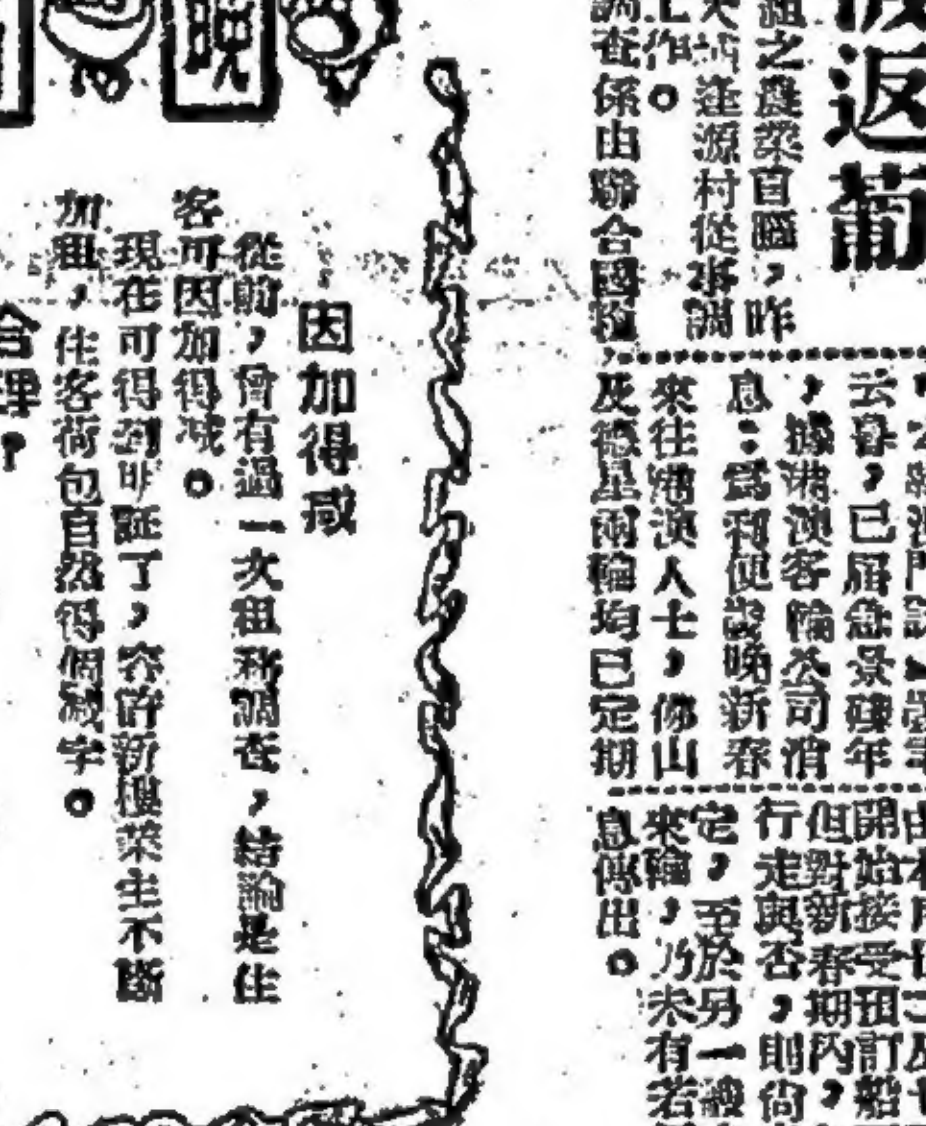 晚
返葡
因加得减
從前，曾有過一次租務調查，結論是住
客可因加得减。
現在可得到明証了，容許新樓業主不斷
加租，住客荷包自然得個减字。
合理？
組之農業自臨，昨
逢源村從事調
工作。
調查係由聯合國
云暮，已屆急景殘年
，據港澳客輪公司消
息：爲利便歲晚新春
來往港澳人士，佛山
及德星兩輪均已定期
開始接受預訂船
但對新春期內，
行走與否，則尙
定，至於另一艘
來輪，乃未有若
息傳出。